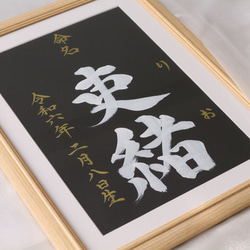 命名
吏緒
りお
令和六年二月八日生